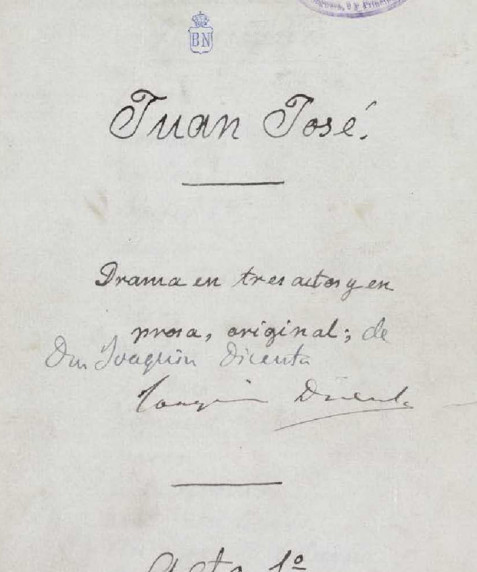 BN
Juan José.
Drama en tres actos y en
prosa, original; de
Don Joaquín Dicenta
Joaquin Dicenta
Acto 1º